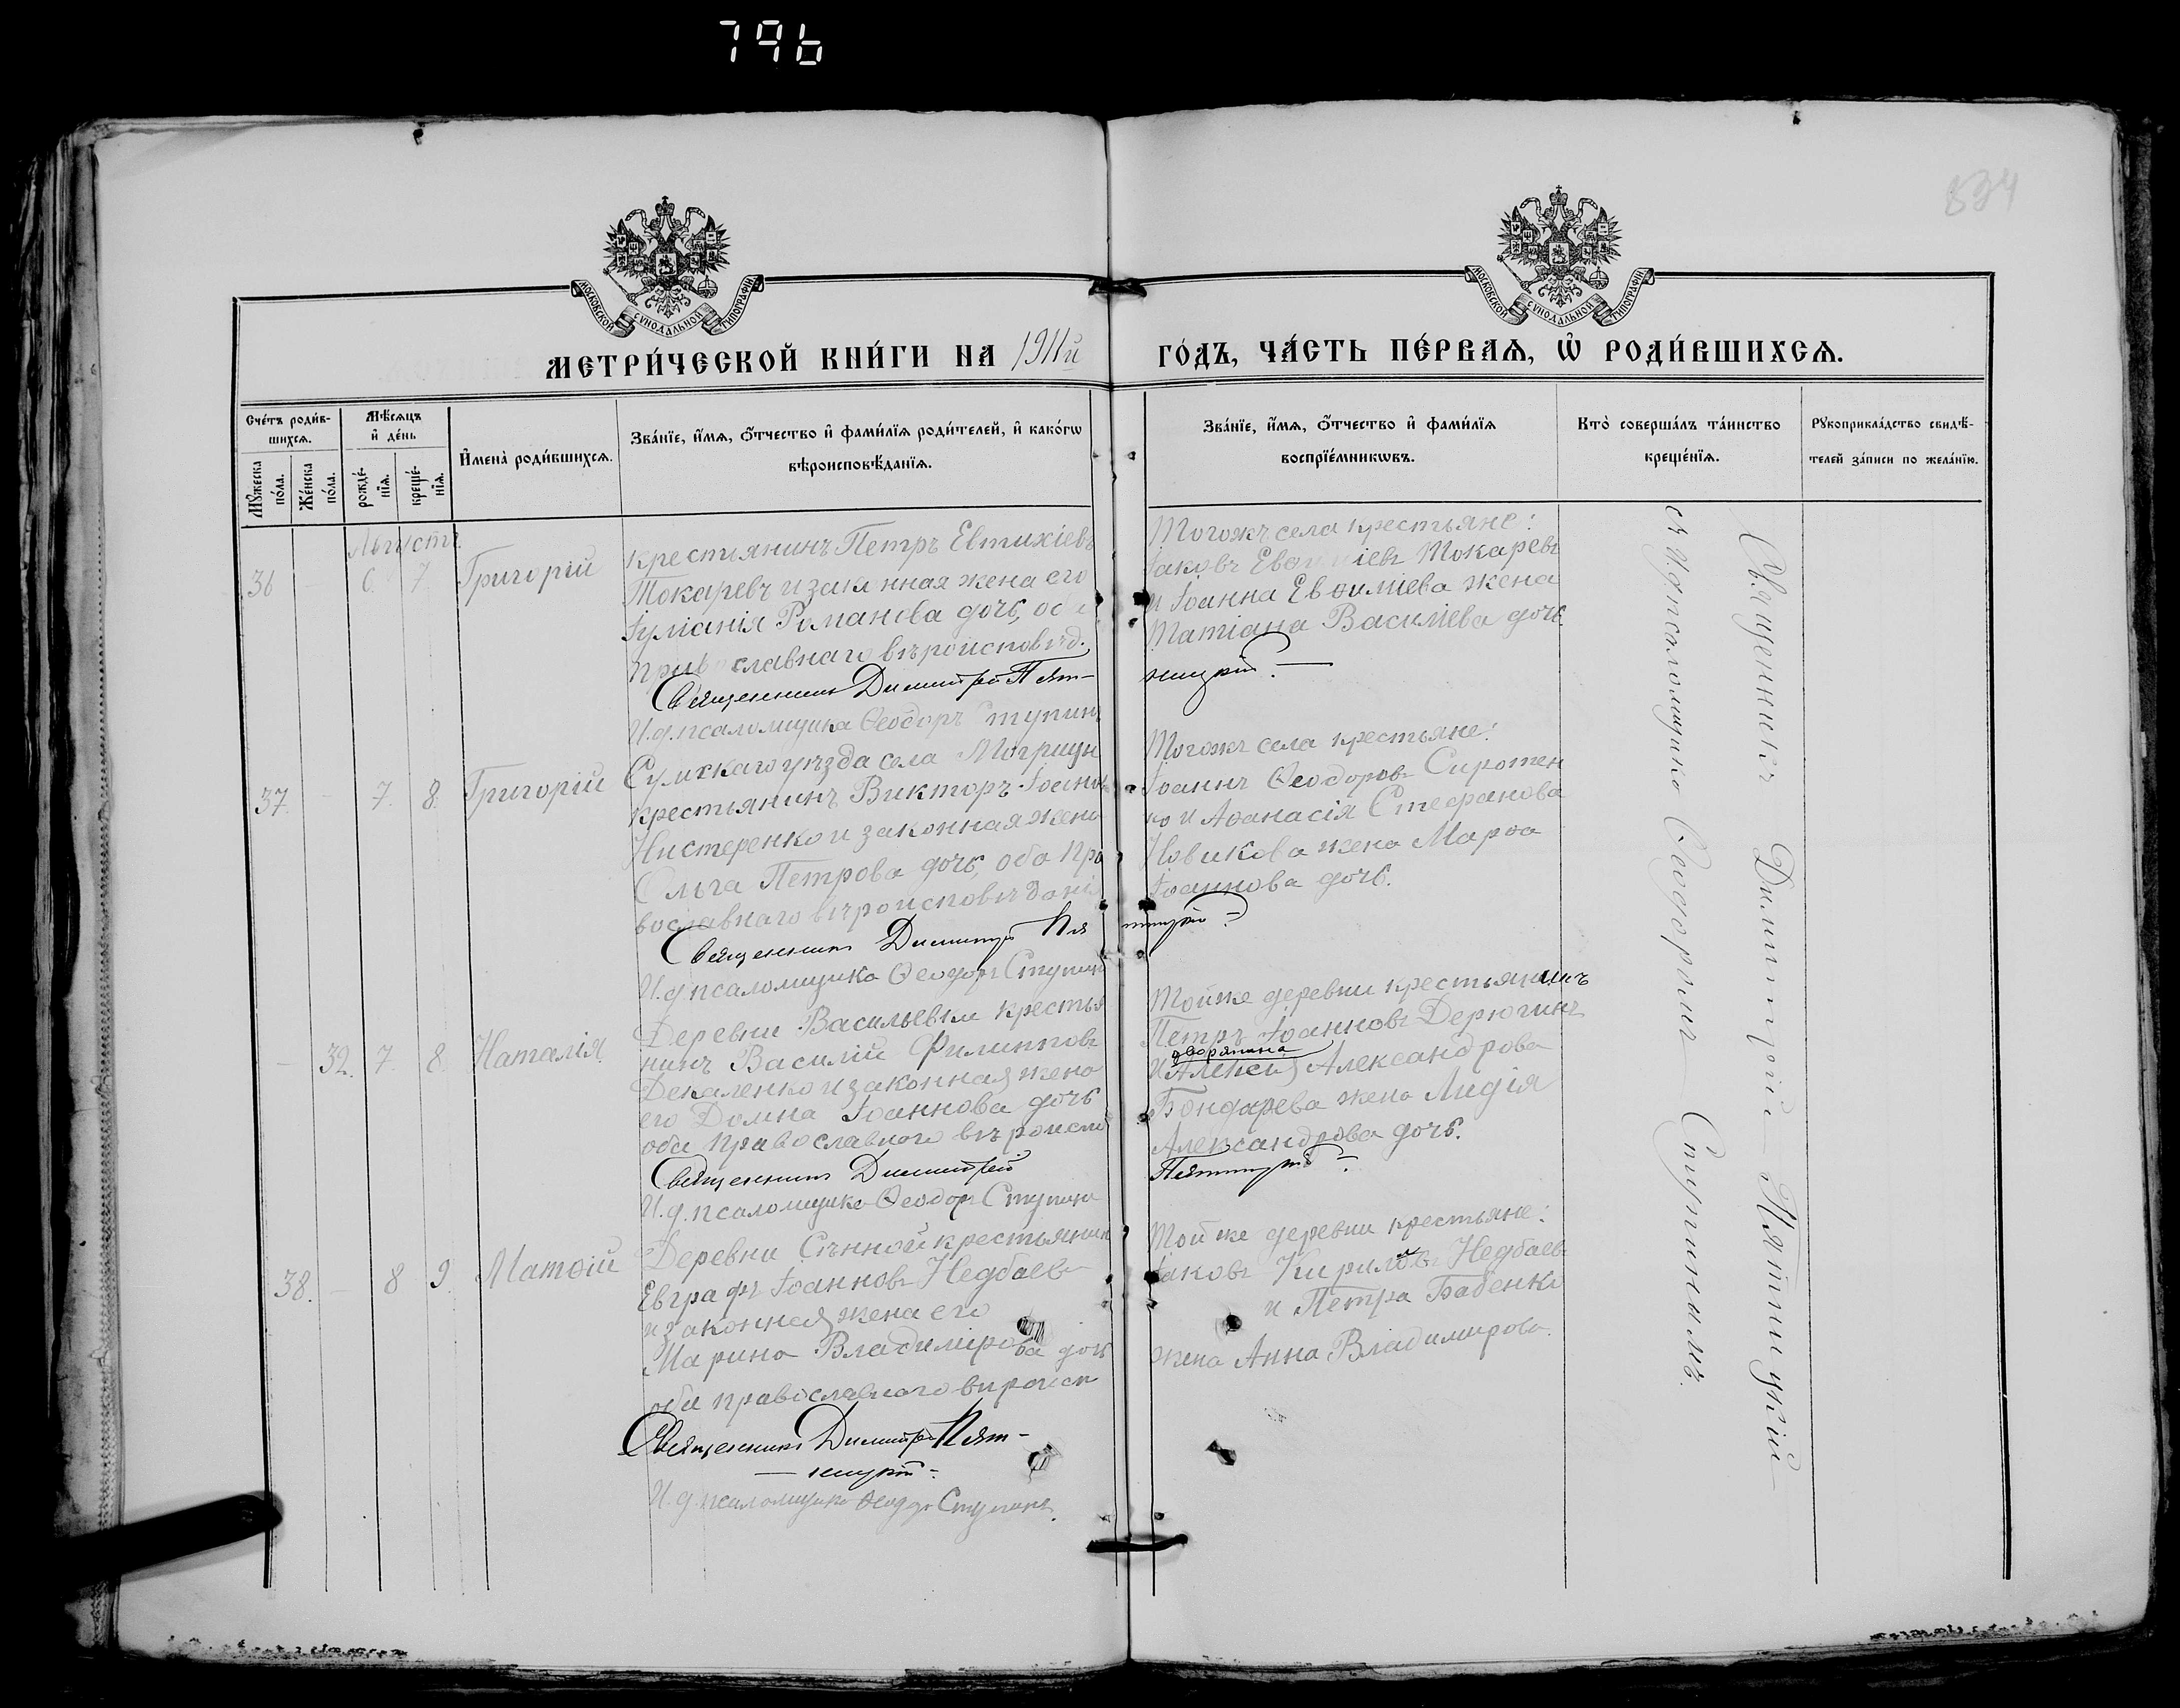 796
534
МОСКОВСКОЙ СУНОДАЛЬНОЙ ТИПОГРАФІИ
МОСКОВСКОЙ СУНОДАЛЬНОЙ ТИПОГРАФІИ
МЕТРИ́ЧЕСКОЙ КНИ́ГИ НА 1911й ГО́ДЪ, ЧА́СТЬ ПЕ́РВАѦ, Ѡ҆ РОДИ́ВШИХСѦ.
Сче́тъ роди́в-
шихсѧ.
Мѣ́сѧцъ
и҆ де́нь
И҆мена̀ роди́вшихсѧ.
Зва́нїе, и҆́мѧ, ѻ҆́тчество и҆ фами́лїѧ роди́телей, и҆ како́гѡ
вѣроисповѣ́данїѧ.
Зва́нїе, и҆́мѧ, ѻ҆́тчество и҆ фами́лїѧ
воспрїе́мникѡвъ.
Кто̀ соверша́лъ та́инство
креще́нїѧ.
Рꙋкоприкла́дство свидѣ́-
телей за́писи по жела́нїю.
Мꙋ́жеска
по́ла.
Же́нска
по́ла.
рожде́-
нїѧ.
креще́-
нїѧ.
Августъ
36 – 6. 7. Григорій
крестьянинъ Петръ Евтихіевъ
Токаревъ и законная жена его
Іуліанія Романова дочь, оба
православнаго вѣроисповѣд.
Священникъ Димитрій Пят-
ницкій.
И.д. псаломщика Ѳеодоръ Ступинъ
Тогожъ села крестьяне:
Іаковъ Токаревъ
и Іоанна Евѳиміева жена
Татіана Василіева дочь.
37. – 7. 8. Григорій
Сумскаго уѣзда села Могрицы
крестьянинъ Викторъ Іоанновъ
Нистеренко и законная жена
Ольга Петрова дочь, оба пра
вославнаго вѣроисповѣданія
Священникъ Димитрій Пя
тницкій
И.д. псаломщика Ѳеодоръ Ступинъ
Тогожъ села крестьяне:
Іоаннъ Ѳеодоровъ Сиротен
ко и Аѳанасія Стефанова
Новикова жена Марѳа
Іоаннова дочь.
– 32. 7. 8. Наталія
Деревни Васильевки крестья
нинъ Василій Филипповъ
Декаленко и законная жена
его Домна Іоаннова дочь
оба православнаго вѣроиспов
Священникъ Димитрій
Пятницкій
И.д. псаломщика Ѳеодоръ Ступинъ
Тойже деревни крестьянинъ
Петръ Іоанновъ Дерюгинъ
дворянина
и Алексія Александрова
Бондарева жена Лидія
Александрова дочь.
38. – 8 9. Матѳій
Деревни Сѣнной крестьянинъ
Евграфъ Іоанновъ Недбаевъ
и законная жена его
Марина Владимірова дочь
оба православнаго вѣроисп
Священникъ Димитрій Пят-
ницкій
И.д. псаломщика Ѳеодоръ Ступинъ.
Тойже деревни крестьяне:
Іаковъ Кириловъ Недбаевъ
и Петра Бабенко
жена Анна Владимирова.
Священникъ Димитрій Пятницкій
съ И.д. псаломщика Ѳеодоромъ Ступинымъ.